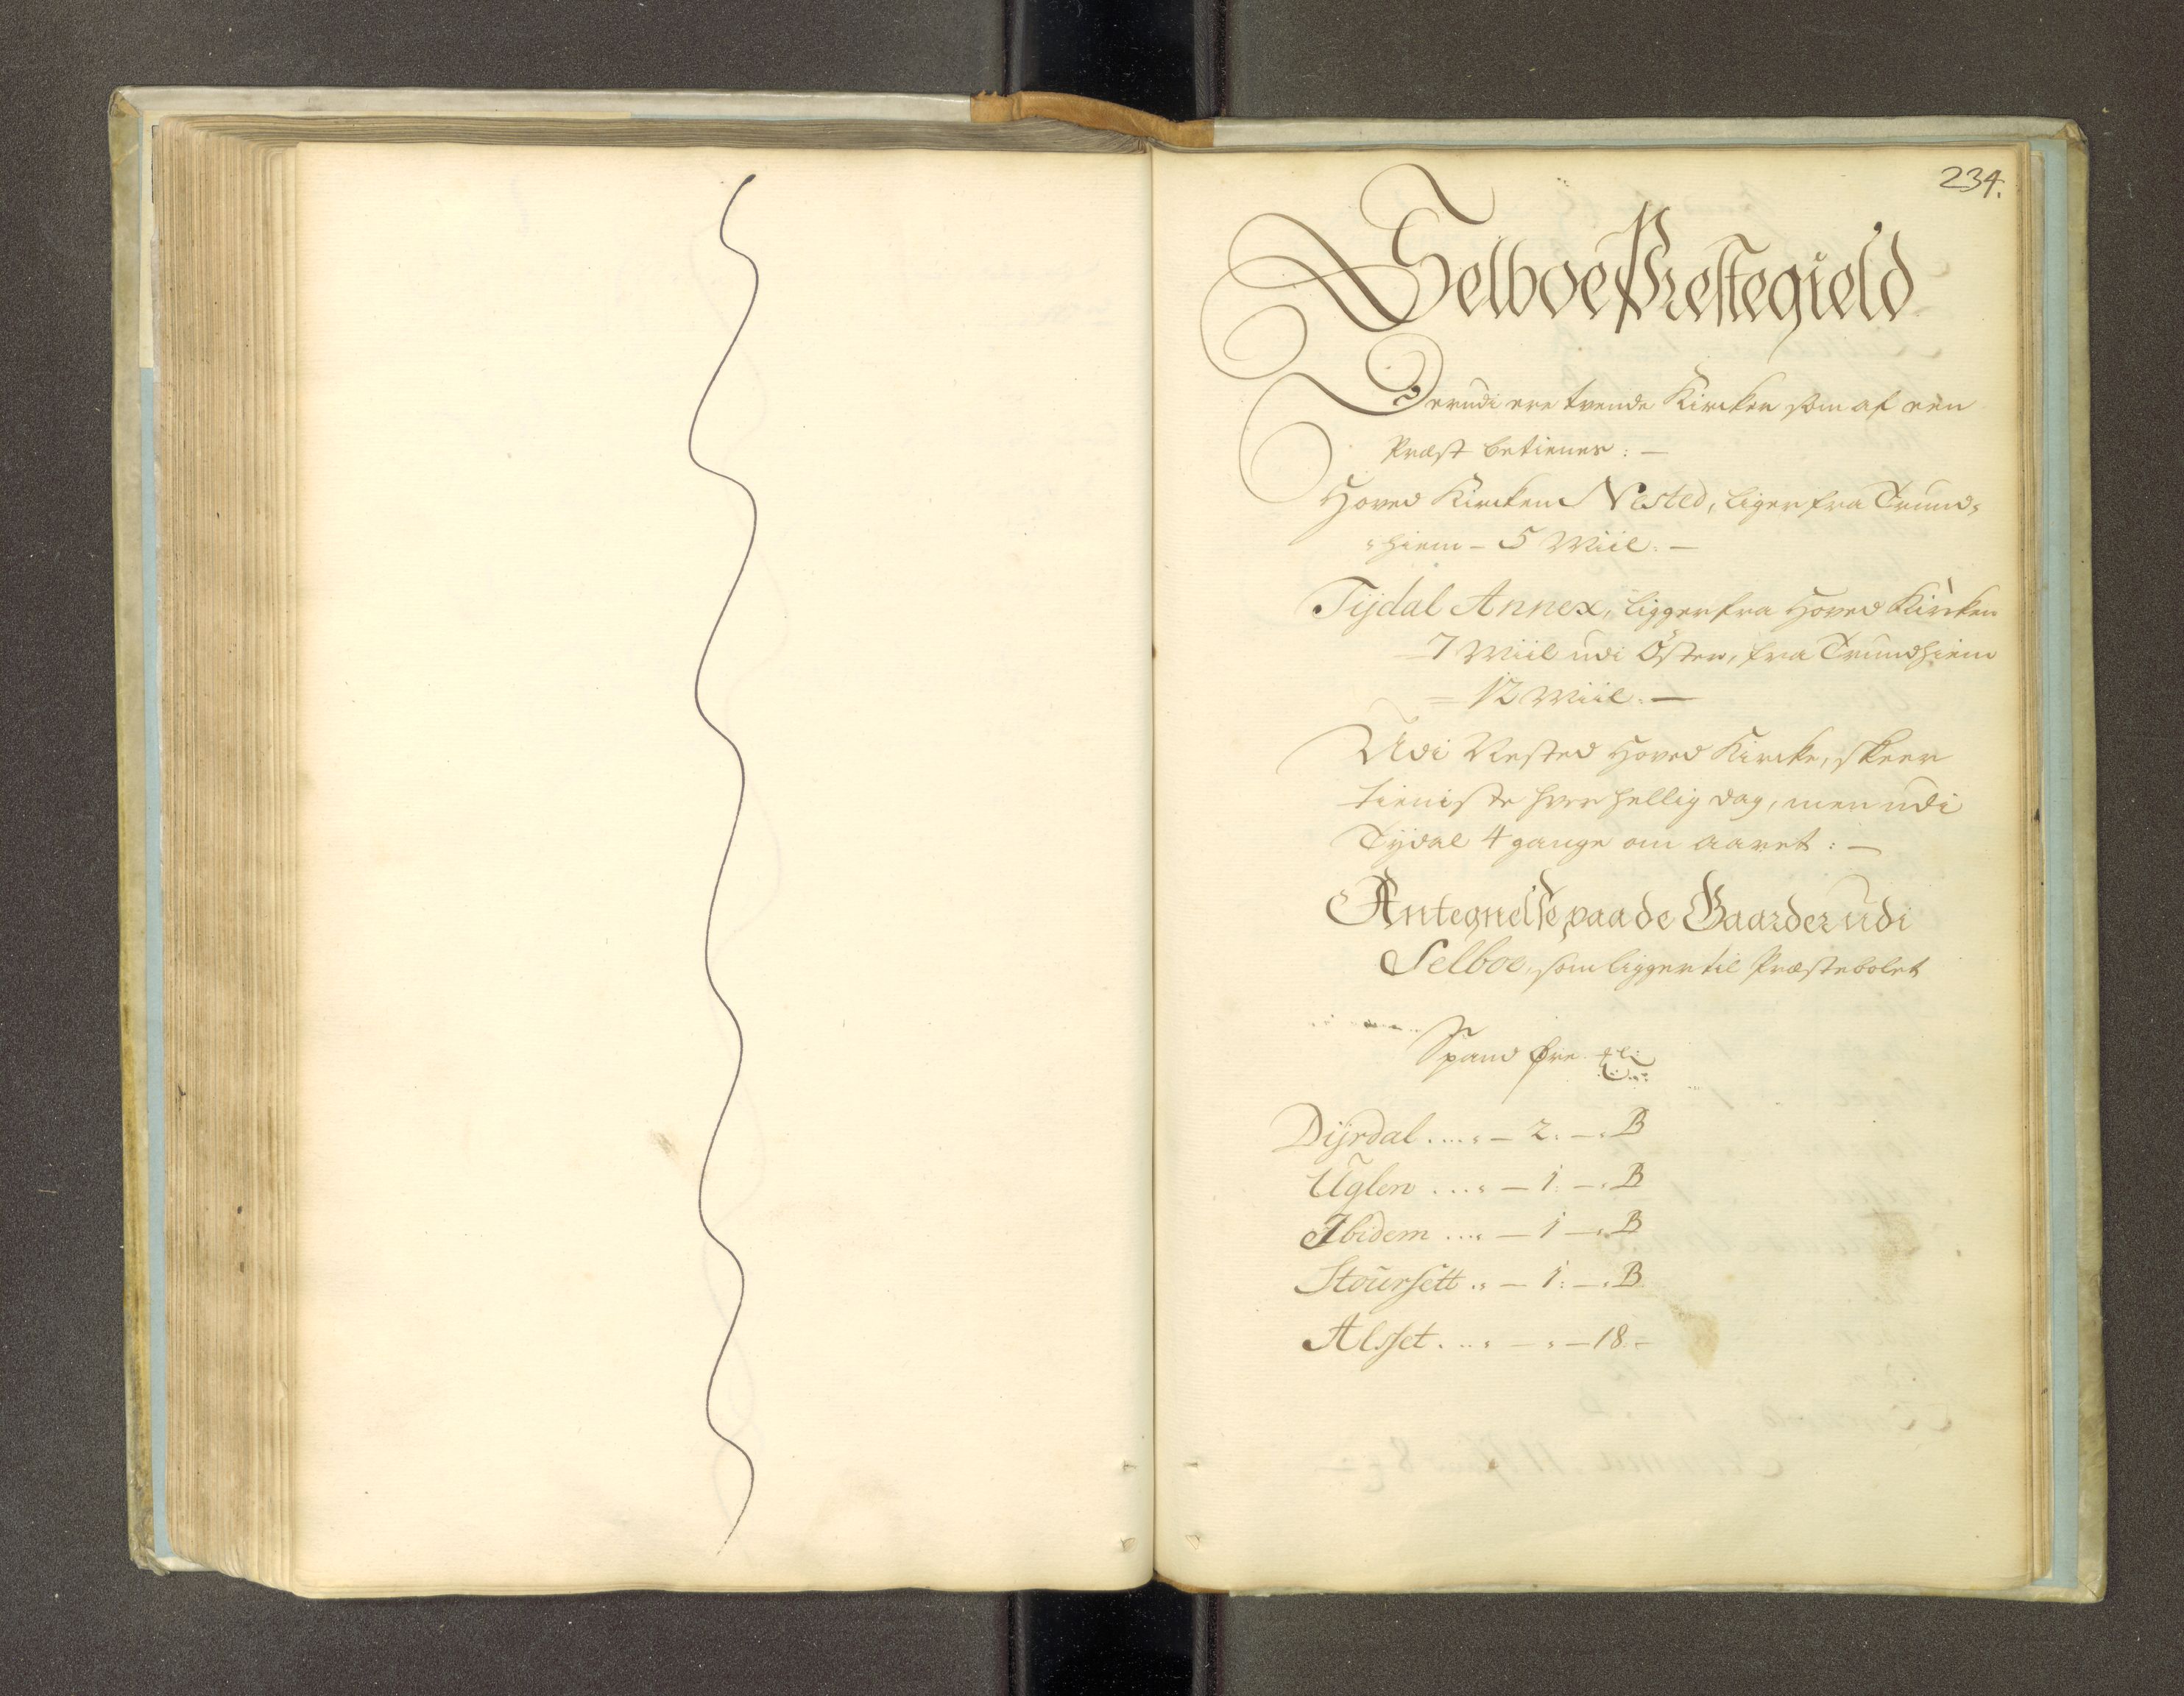 234.
Selboe Prestegield
Derudi ere tvende Kircker som af een
Præst betienes: —
Hoved Kircken Nested, liger fra Trund=
=hiem – 5 Miil. —
Tijdal Annex, ligger fra Hoved Kircken
7 Miil udi Øster, fra Trundhiem
= 12 Miil. —
Udi Nested Hoved Kircke, skeer
tieniste hver hellig dag, men udi
Tijdal 4 gange om aaret: —
Antegnelse paa de Gaarder udi
Selboe, som ligger til Præstebolet
Spand Øre
Dijrdal .... — 2. — . B
Uglen .... — 1. — . B
Ibidem .... — 1 — . B
Stoursett .. — 1: — . B
Alsset . ... — . — 18 –